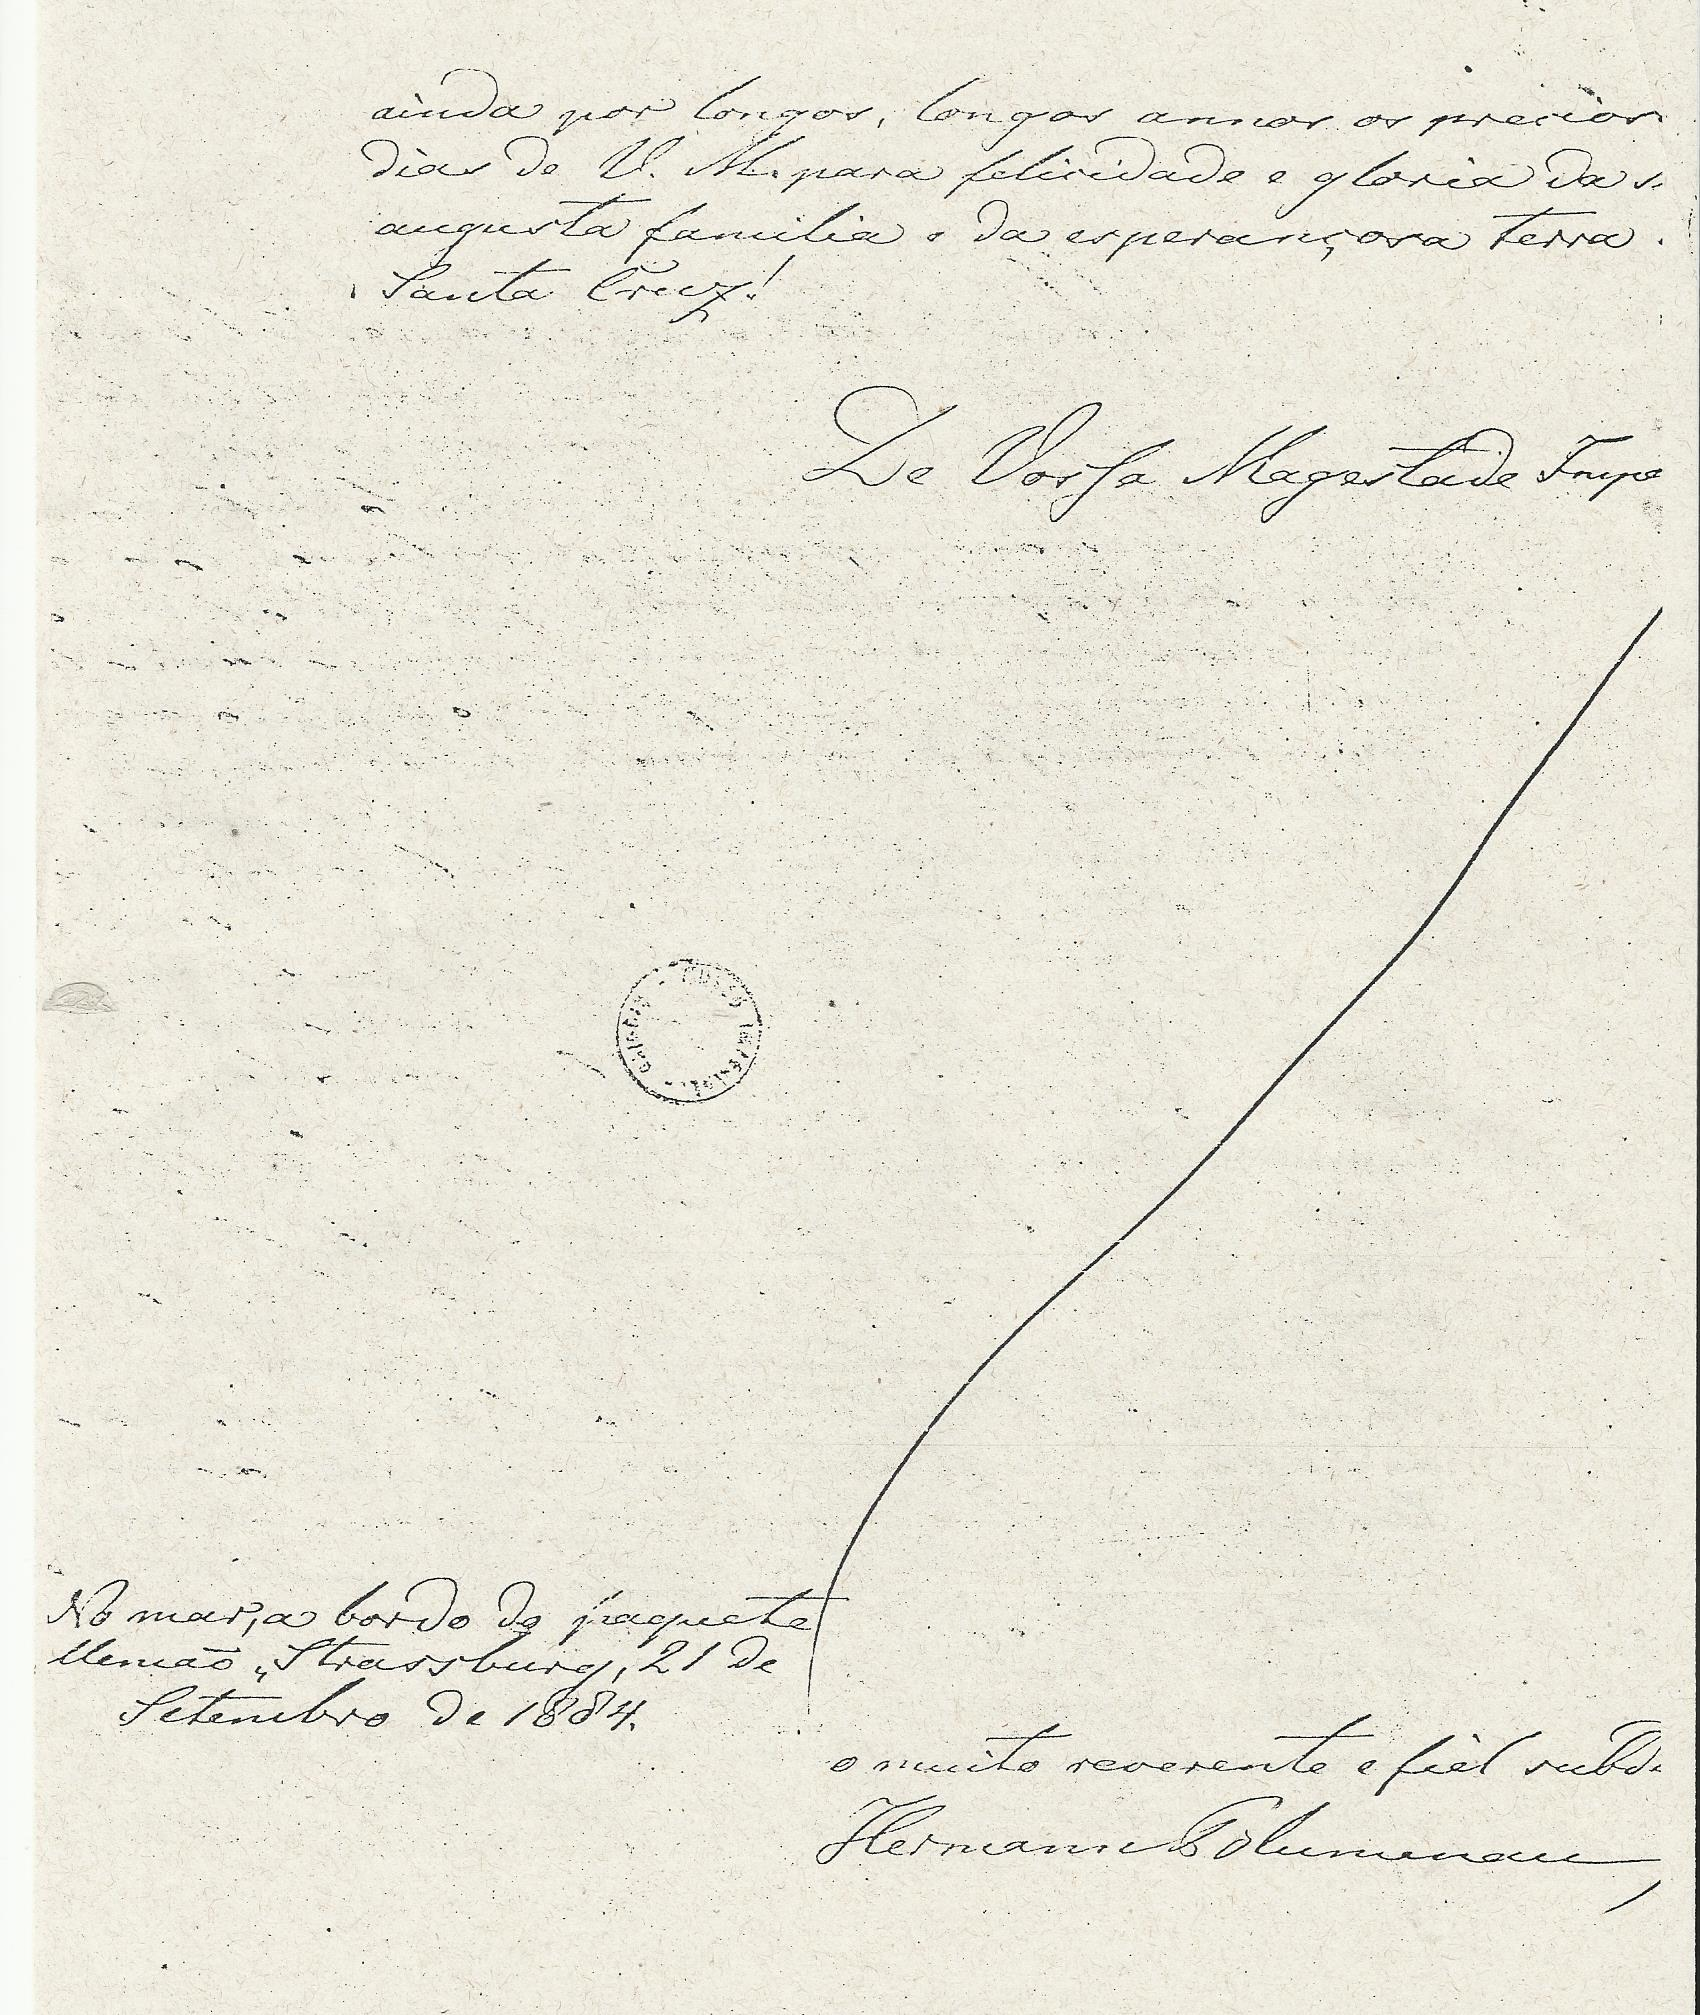 ainda por longos, longos annos os precios
dias de V. M. para felicidade e gloria da s
augusta familia e da esperançosa terra
Santa Cruz!
De Vossa Magestade Impe
MUSEU IMPERIAL
No mar, a bordo do paquete
Alemaõ „Strassburg, 21 de
Setembro de 1884.
o muito reverente e fiel subd
Hermann Blumenau